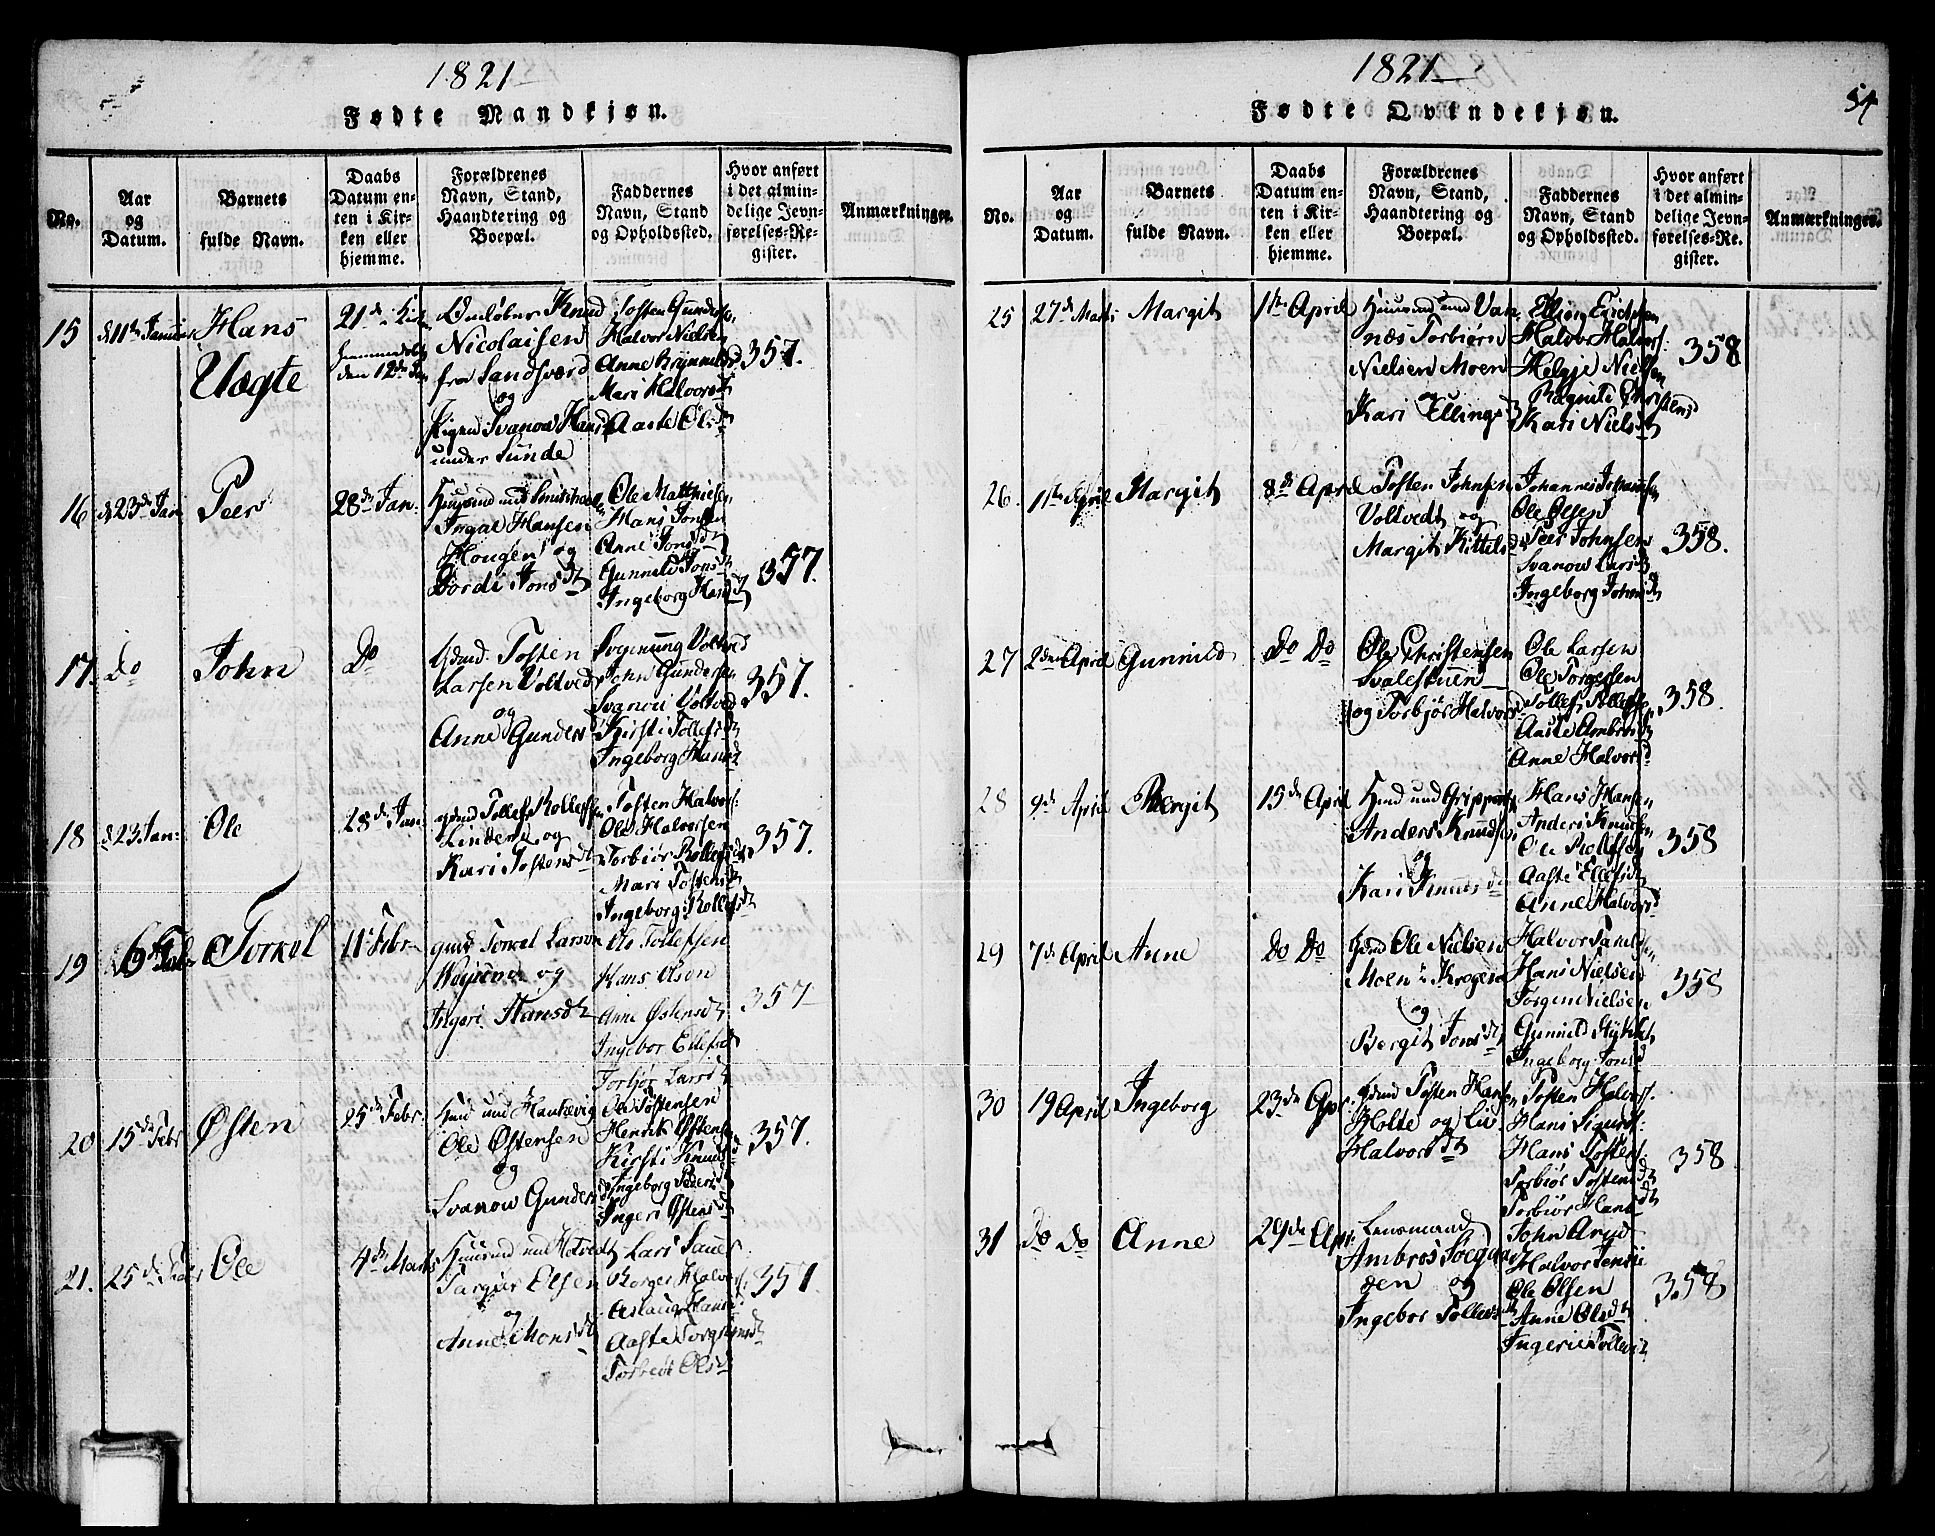 1821
Fødte Mandkjøn.
No.
Aar
og
Datum.
Barnets
fulde Navn.
Daabs
Datum en-
ten i Kir-
ken eller
hjemme.
Forældrenes
Navn, Stand,
Haandtering og
Boepæl.
Faddernes
Navn, Stand
og Opholdssted.
Hvor anført
i det almin-
delige Jevn-
førelses-Re-
gister.
Anmærkninger.
15
d 11te Januar
Hans
Aagte
21de
den 12de Jan
Nicolaisen
fra Sandsværd
og
Pigen Svanow Hansd
under Sunde
Tosten Gunders
Halvor Nielsen
Anne
Mari Halvorsd
Aaste Olsd
357.
16
d 23de Jan
Peer
28de Jan:
Ingal Hansen
Hougen og
Jordi Jonsd
Ole Matthiesen
Hans Jonsen
Anne Jonsd
Gunneld Jonsd
Ingeborg Hansd
357.
17.
Do
John
Do
Gdmd. Tosten
Larsen Voltved
og
Anne Gundersd
John Gundersen
Svanou Voltved
Kirsti Tollefsd
Ingeborg Hansd
357.
18
d 23 Jan:
Ole
28de Jan:
Gdmd Tollef Rollefsen
Linderud og
Kari Tostensd
Tosten Halvors:
Ole Halvorsen
Torbiør Rollefsd
Mari Tostensd
Ingeborg Rollefsd
357.
19
Torkel
11te Febr
gmd Torkel Larsen
og
Ingeri Hansdt
Ole Tollefsen
Hans Olsen
Anne Østensdt
Ingebor Ellefsd
Torbjør Larsdt
357
20
15de Febr
Østen
25de Febr.
Ole Østensen
og
Svanow Gundersd
Ole Tostensen
Henrik Østensen
Kirsti Knudsd
Ingeborg Pedersd
Ingeri Østensd
357.
21.
25de
Ole
4de Marts
Targier Elsen
og
Anne Monsdt
Lars
Borger Halvors:
Aslaug Hans:
Aaste Torgrimsdt
Torbiør Olsd
357.
1821
54
Fødte Qvindekjøn.
No.
Aar
og
Datum.
Barnets
fulde Navn.
Daabs
Datum en-
ten i Kir-
ken eller
hjemme.
Forældrenes
Navn, Stand,
Haandtering og
Boepæl.
Faddernes
Navn, Stand
og Opholdssted.
Hvor anført
i det almin-
delige Jevn-
førelses-Re-
gister.
Anmærkninger.
25
27de Marts
Margit
1ste April
næs Torbiørn
Nielsen Moen
og
Kari Ellingsd
Halvor Halvors:
Helgje Nielsen
Kari Nielsd
358
26.
1ste April
Margit
8de April
Tosten Johnsen
Voltvedt og
Margit Kittelsd
Johannes Johannesen
Ole Olsen
Peer Johnsen
Svanow Larsd
Ingeborg Johnsd
358.
27
2den April
Gunnild
Do Do
Ole Christensen
Svalestuen
og Torbjør Halvorsd
Ole Larsen
Ole Torgersen
Tollef Tollefse
Aaste Ambrosd
Anne Halvorsd
358
28
9de April
Bergit
15de April
Anders Knudsen
og
Kari Knutsd
Hans Hansen
Anders Knudsen
Ole Rollefsen
Aaste Ellefsd
Anne Halvorsd
358
29
7de April
Anne
Do Do
Gdmd Ole Nielsen
Moen
og
Bergit Jonsd
Halvor
Hans Nielsen
Torgen Nielsen
Gunnild
Ingeborg Jonsd
358
30
19 April
Ingeborg
23de Apr.
Gdmd Tosten Hansen
Holte og Liv
Halvorsdt
Tosten Halvors.
Hans Sigurd:
Hans Tosten:
Torbiør Tostensd
Torbiør Hansdt
358
31
Do Do
Anne
29de Apr:
Lensmand
Ambros
den og
Ingebor Tollevsd
John
Halvor
Ole Olsen
Anne Olsdt
Ingerie Tollevsd
358